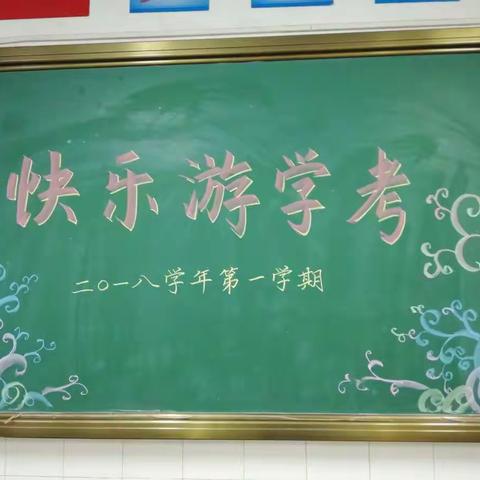 快乐游学考
二〇一八学年第一学期